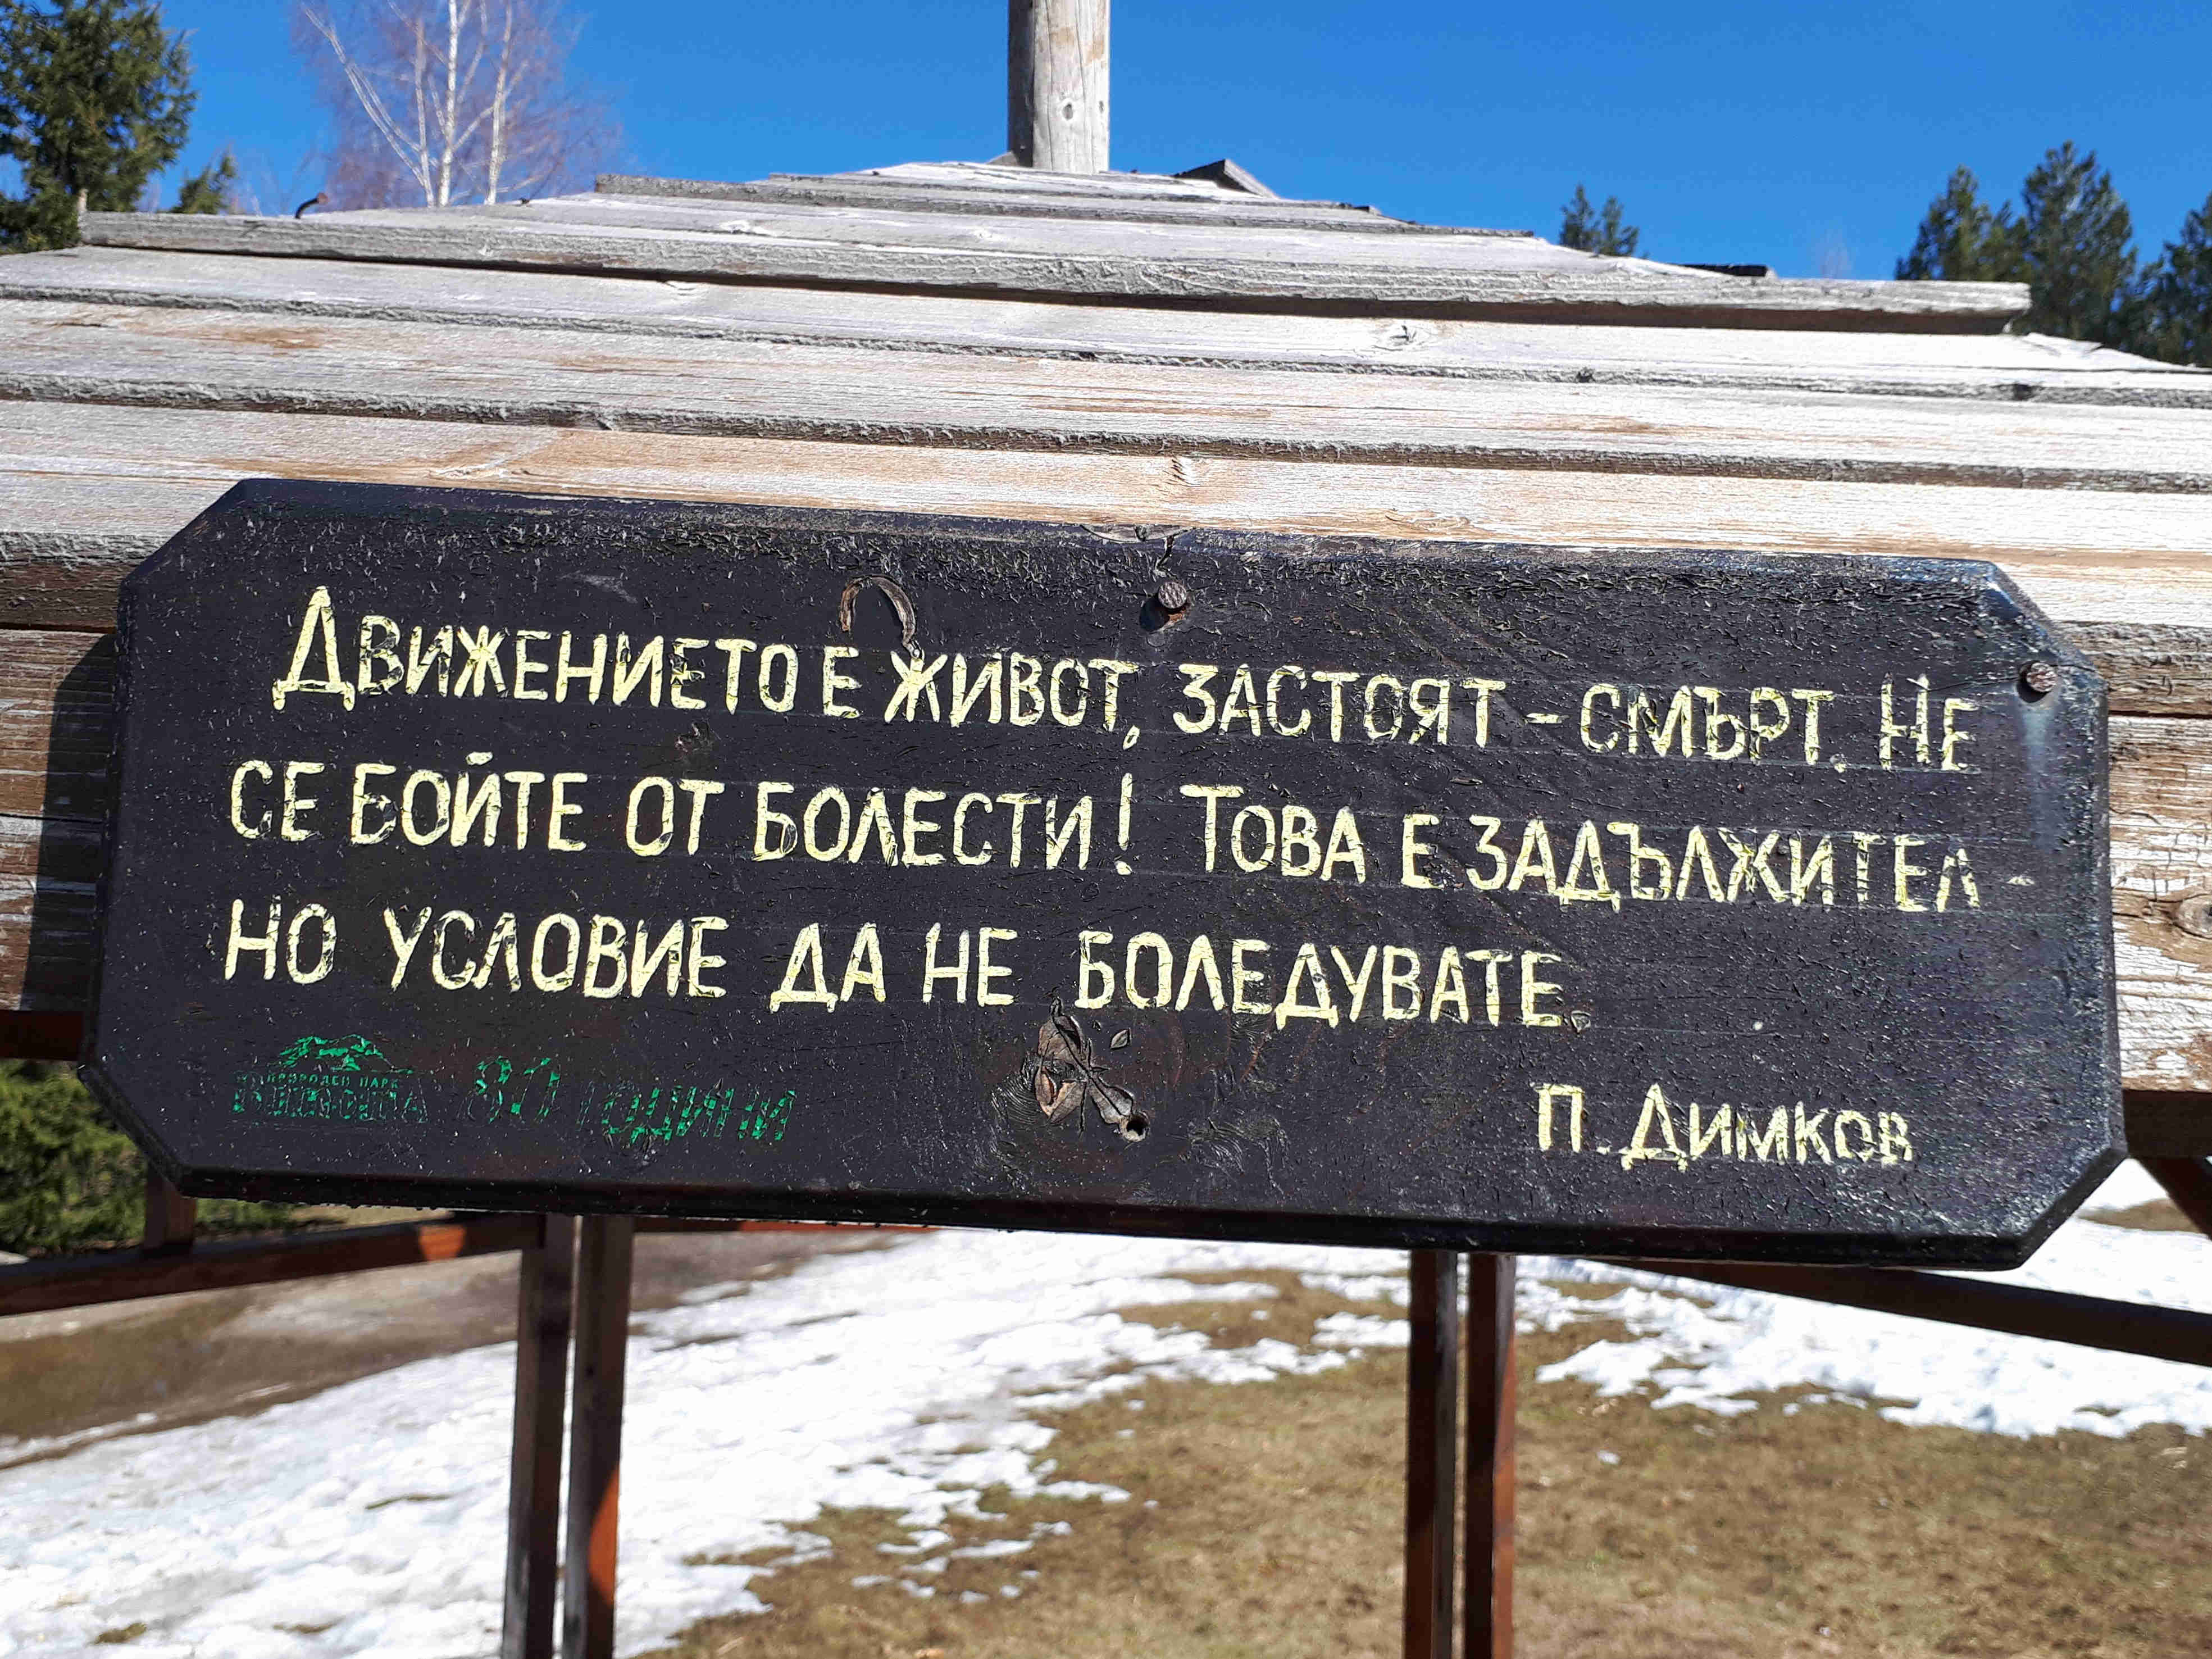 Движението е живот, застоят - смърт. Не
се бойте от болести! Това е задължител -
но условие да не боледувате.
П. Димков
ПРИРОДЕН ПАРК
ВИТОША 80 години